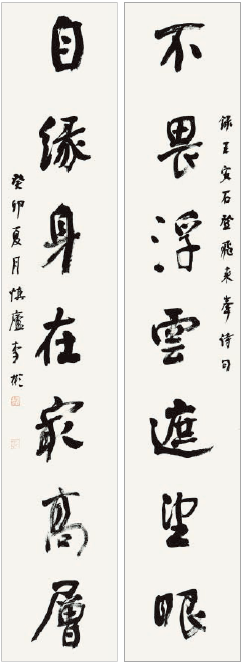 不畏浮雲遮望眼
録王安石登飛來峯詩句
自緣身在最高層
癸卯夏月慎廬李彬